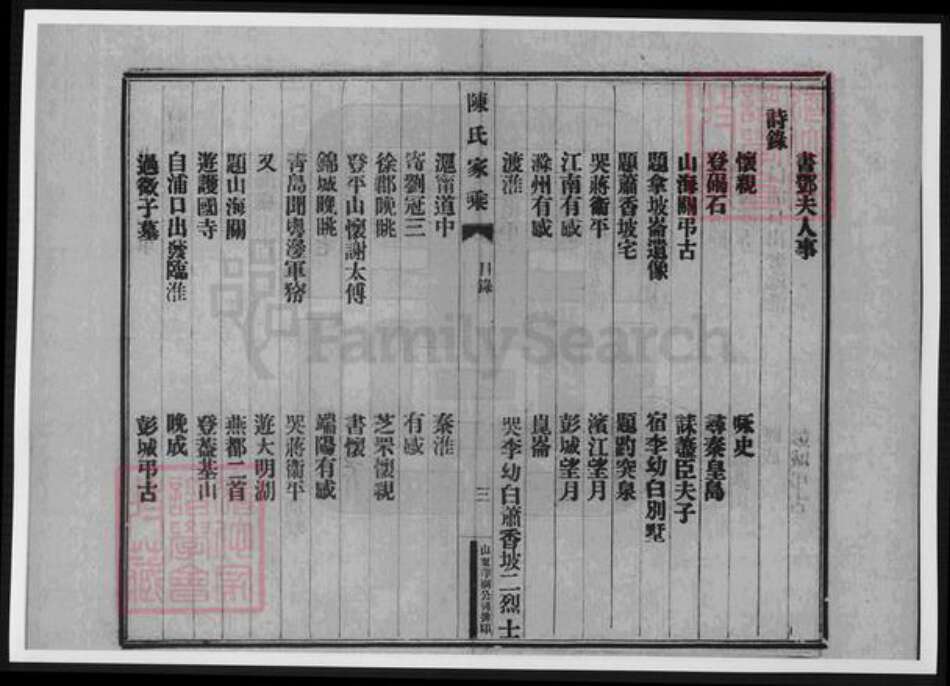 書鄧夫人事
詩錄
懷親
詠史
登碣石
尋秦皇島
山海關弔古
誄藎臣夫子
題拿坡崙遺像
宿李幼白別墅
題蕭香坡宅
題趵突泉
哭蔣衛平
濱江望月
江南有感
彭城望月
滁州有感
崑崙
渡淮
哭李幼白蕭香坡二烈士
陳氏家乘
目錄
三
滬甯道中
秦淮
寄劉冠三
有感
徐郡晚眺
芝罘懷親
登平山懷謝太傅
書懷
錦城晚眺
端陽有感
青島聞粵邊軍
哭蔣衛平
又
遊大明湖
題山海關
燕都二首
遊護國寺
登蓋基山
自浦口出發臨淮
晚成
過微子墓
彭城弔古
FamilySearch